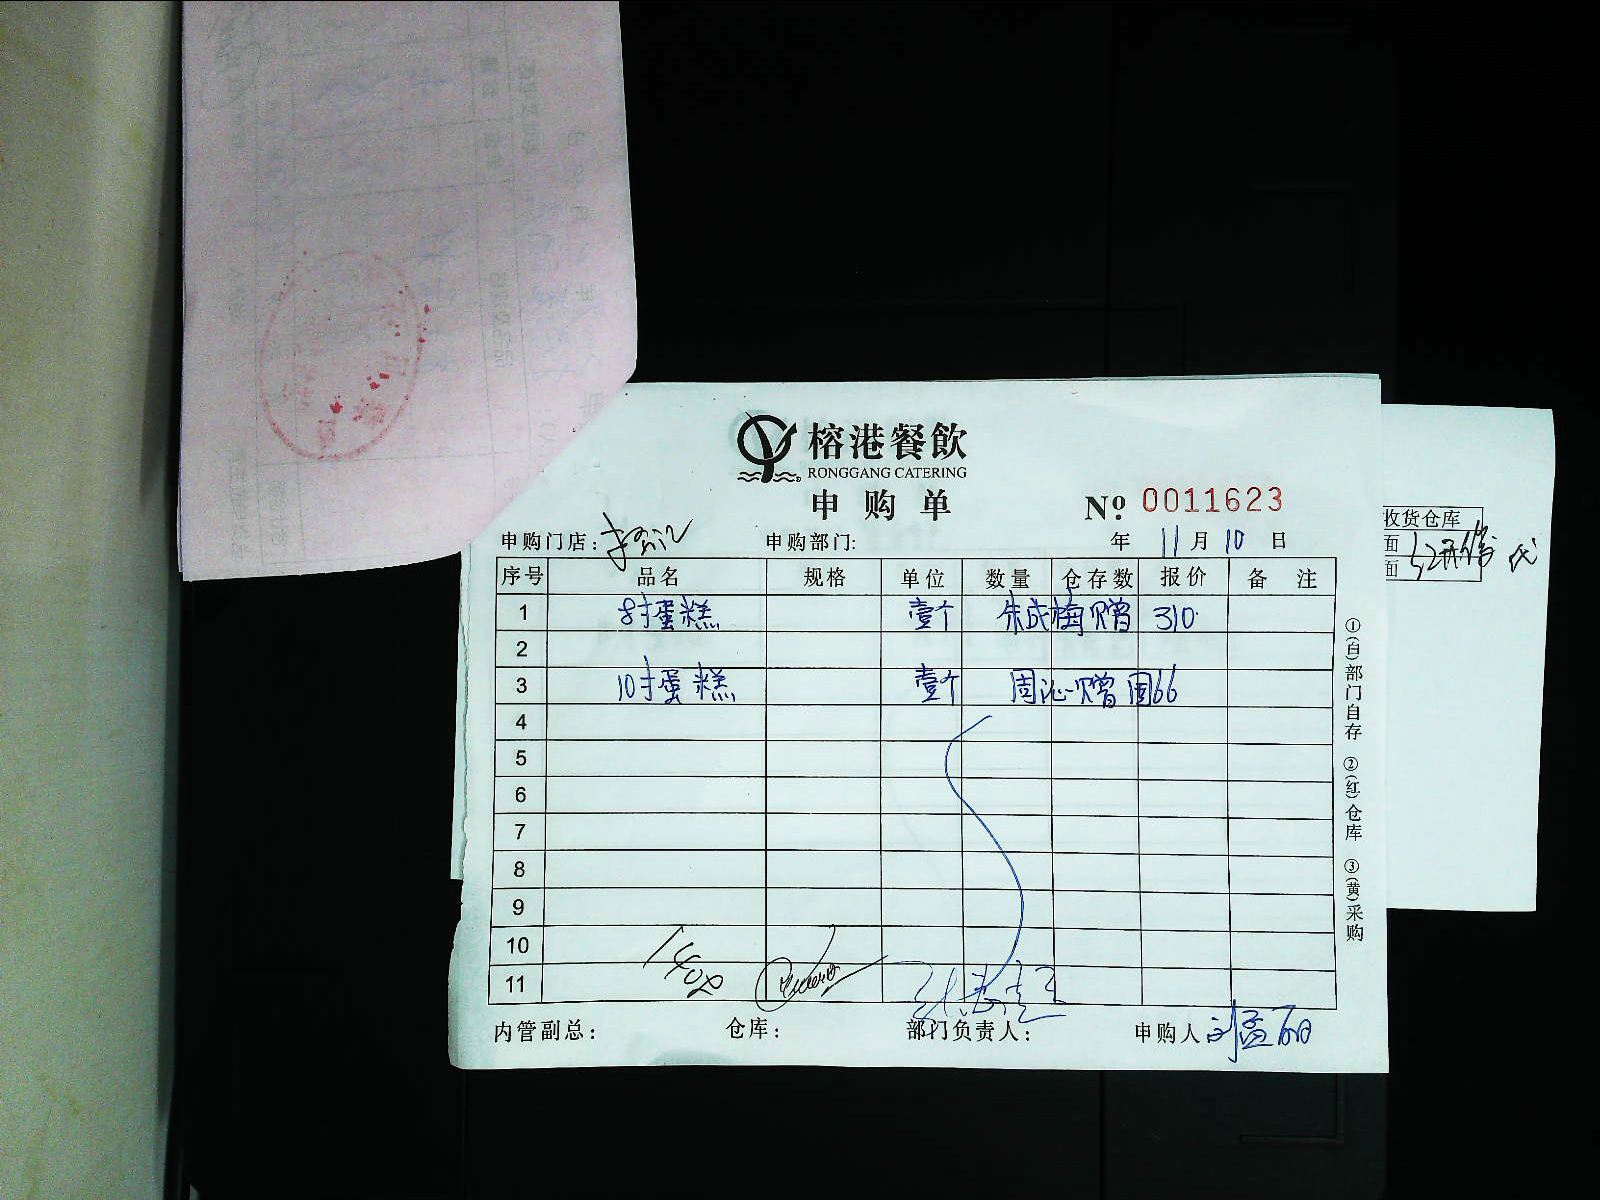 榕港餐飲
RONGGANG CATERING
申购单
№ 0011623
申购门店: 申购部门: 年 11 月 10 日
序号 品名 规格 单位 数量 仓存数 报价 备注
1 8寸蛋糕 壹个 朱成梅赠 310
2
3 10寸蛋糕 壹个 周沁赠 围66
4
5
6
7
8
9
10
11
内管副总: 仓库: 部门负责人: 申购人 刘孟丽
①(白)部门自存 ②(红)仓库 ③(黄)采购
收货仓库
面
面